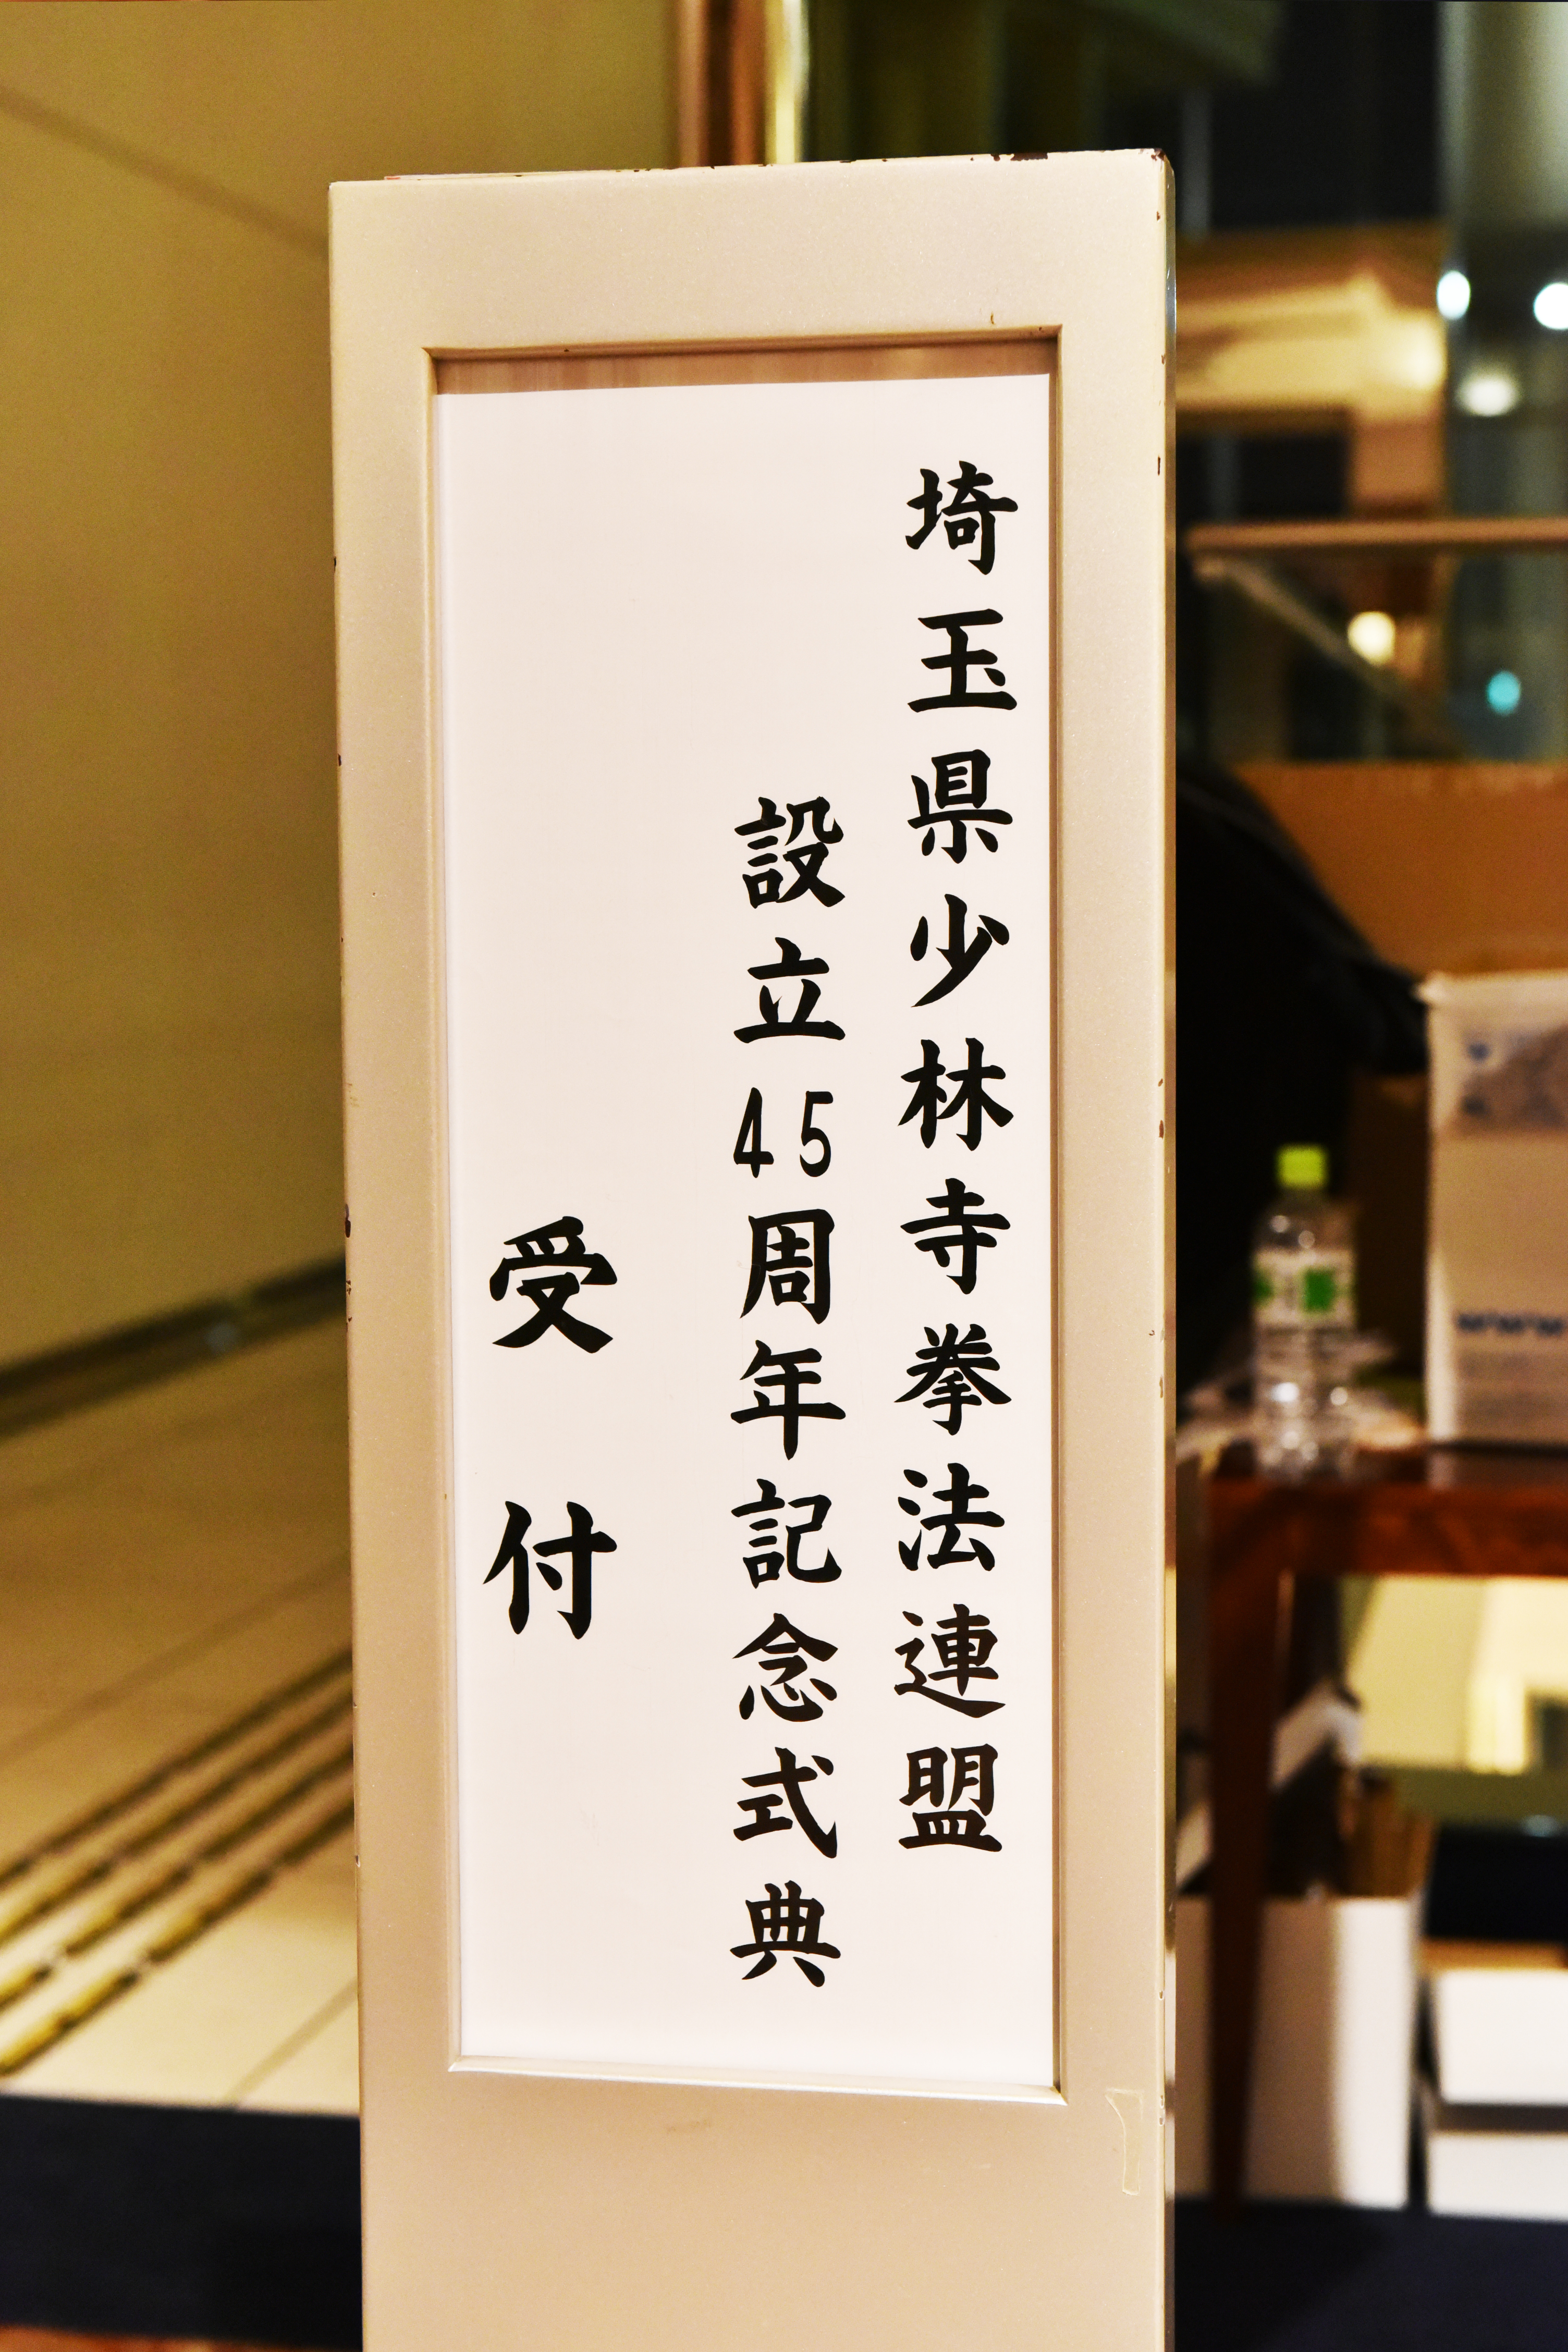 埼玉県少林寺拳法連盟
設立45周年記念式典
受付